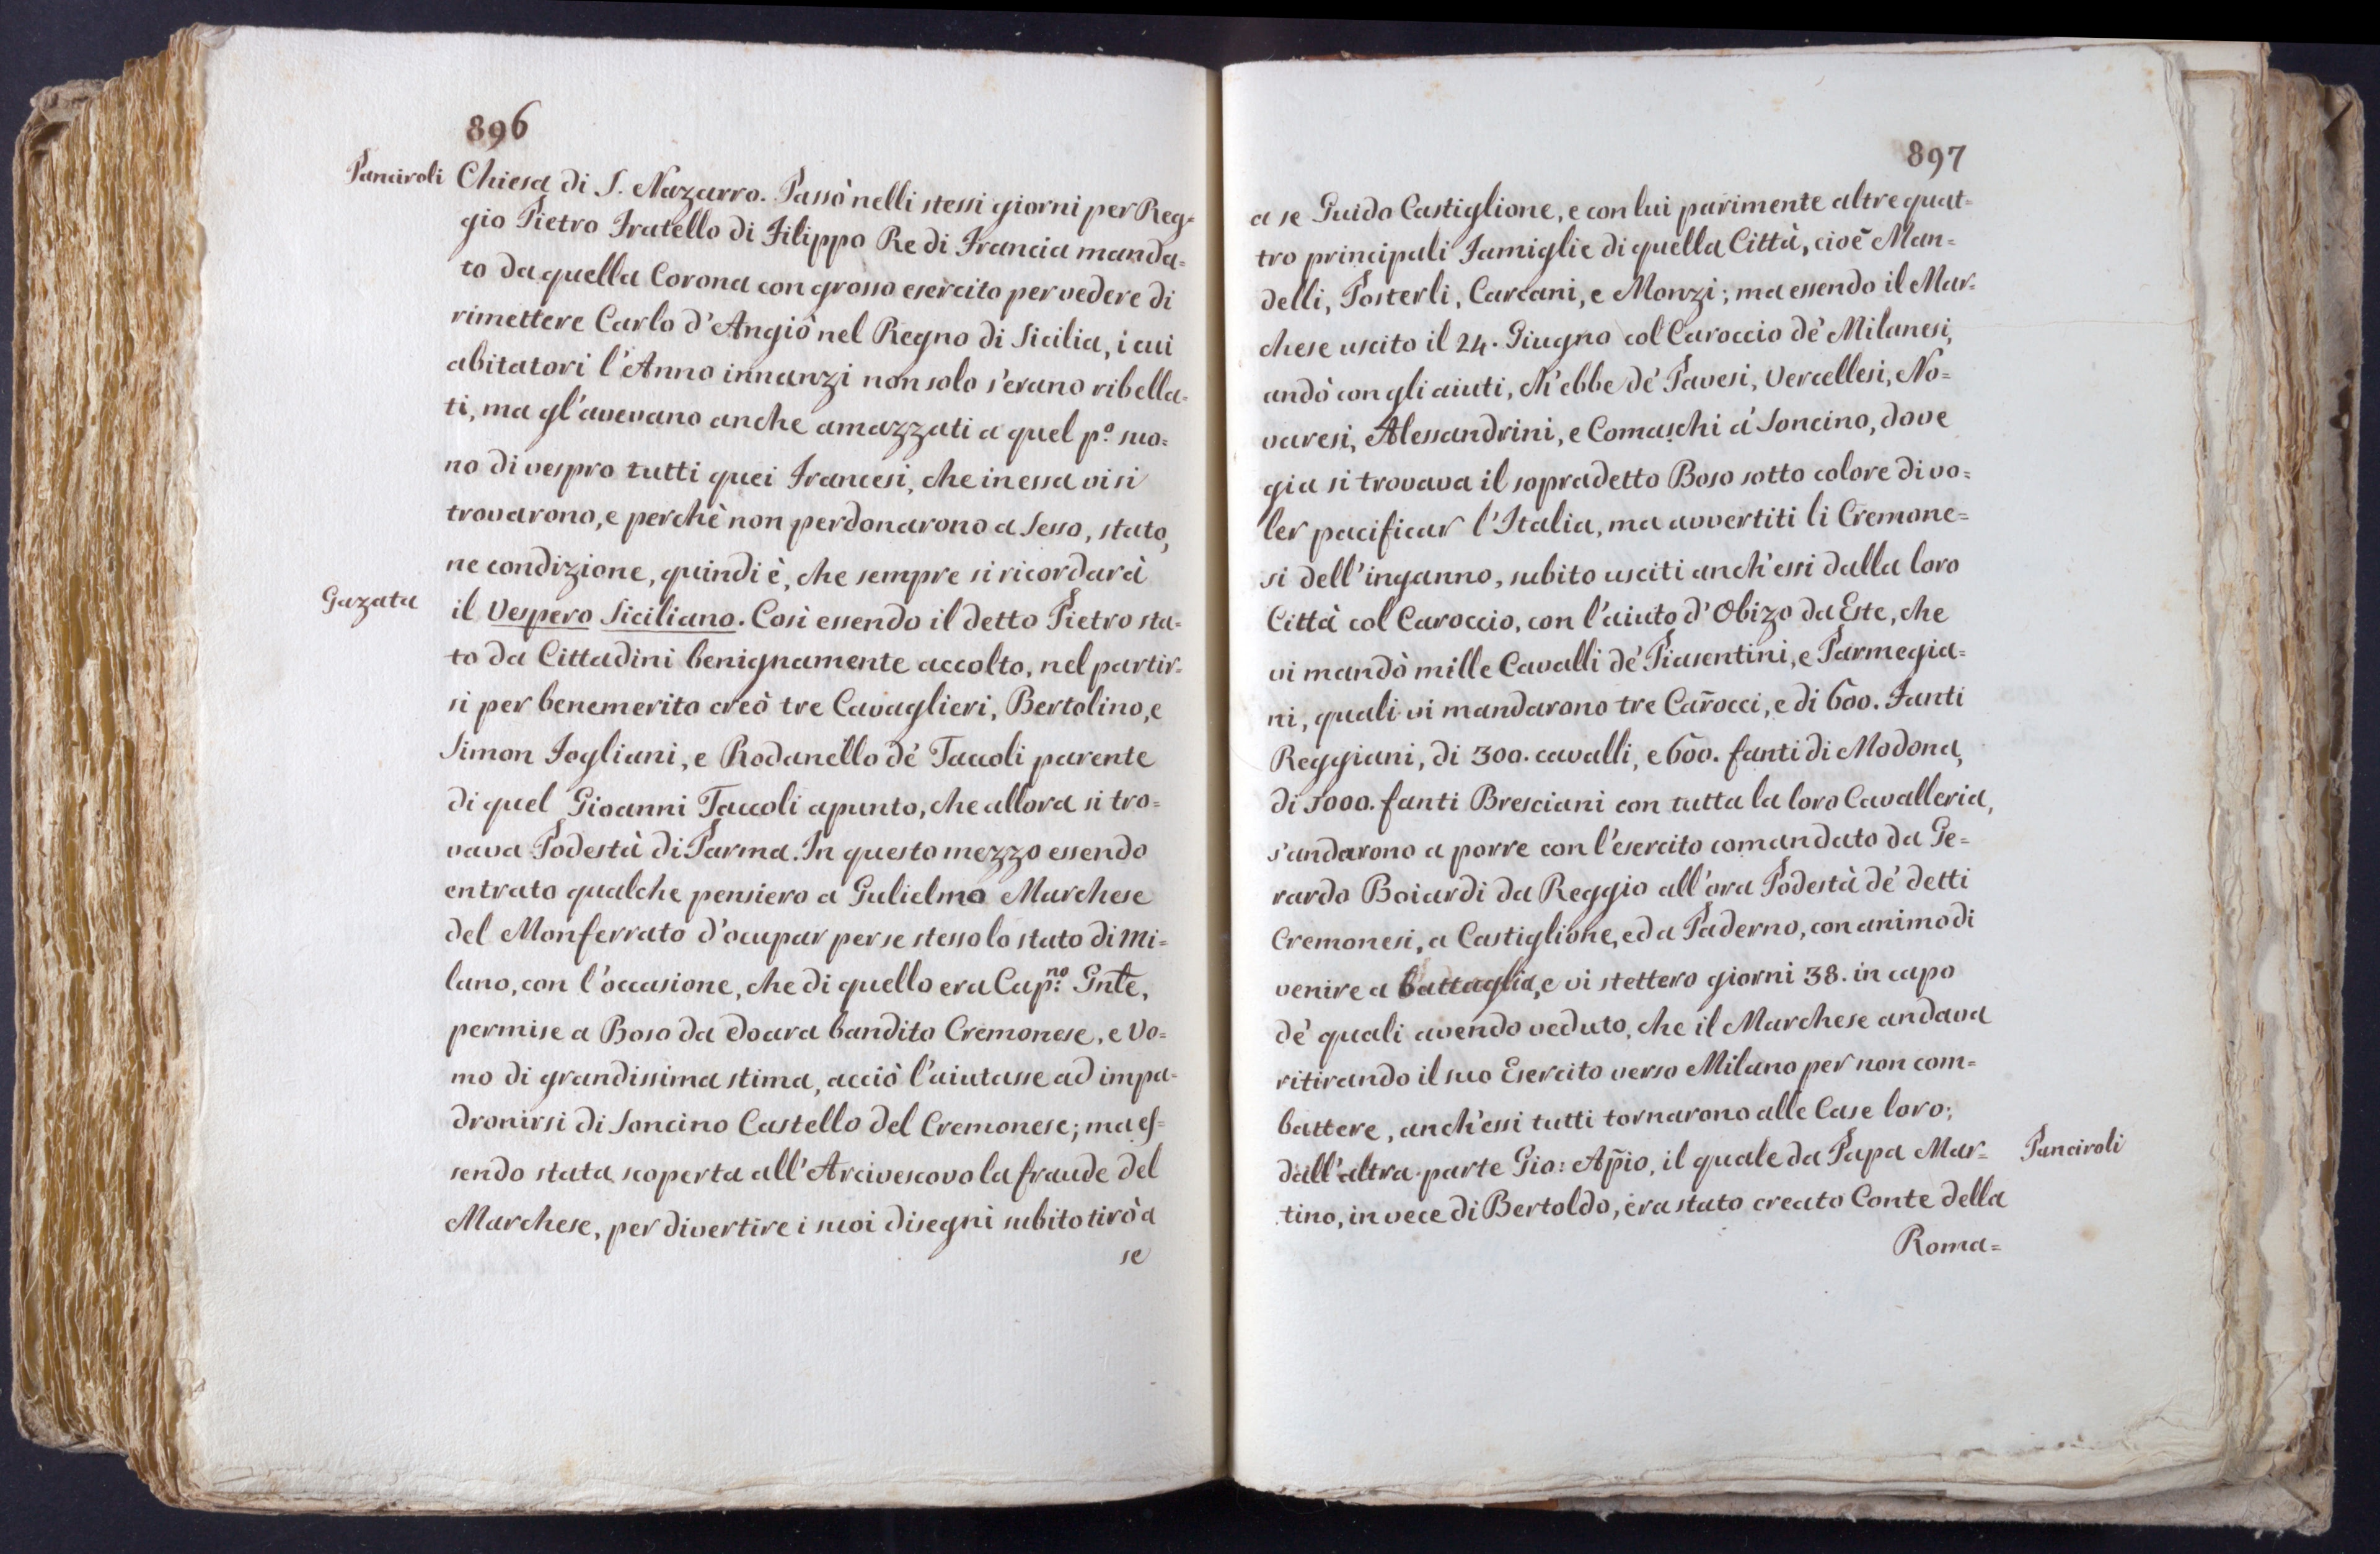 896
Panciroli
Chiesa di S. Nazarro. Passò nelli stessi giorni per Reg=
gio Pietro Fratello di Filippo Re di Francia manda=
to da quella Corona con grosso esercito per vedere di
rimettere Carlo d'Angiò nel Regno di Sicilia, i cui
abitatori l'Anno innanzi non solo s'erano ribella=
ti, ma gl'avevano anche amazzati a quel p.º suo=
no di vespro tutti quei Francesi, che in essa vi si
trovarono, e perchè non perdonarono a Sesso, stato,
ne condizione, quindi è, che sempre si ricordarà
Gazata
il Vespero Siciliano. Così essendo il detto Pietro sta=
to da Cittadini benignamente accolto, nel partir=
si per benemerito creò tre Cavaglieri, Bertolino, e
Simon Fogliani, e Rodanello dé Taccoli parente
di quel Gioanni Taccoli apunto, che allora si tro=
vava Podestà di Parma. In questo mezzo essendo
entrato qualche pensiero a Gulielmo Marchese
del Monferrato d'ocupar per se stesso lo stato di Mi=
lano, con l'occasione, che di quello era Cap:no Gnle,
permise a Boso da Doara bandito Cremonese, e Uo=
mo di grandissima stima, acciò l'aiutasse ad impa=
dronirsi di Soncino Castello del Cremonese; ma es=
sendo stata scoperta all'Arcivescovo la fraude del
Marchese, per divertire i suoi disegni subito tirò a
se
897
a se Guido Castiglione, e con lui parimente altre quat=
tro principali Famiglie di quella Città, cioè Man=
delli, Posterli, Carcani, e Monzi; ma essendo il Mar=
chese uscito il 24. Giugno col Caroccio dé Milanesi,
andò con gli aiuti, ch'ebbe dé Pavesi, Vercellesi, No=
varesi, Alessandrini, e Comaschi á Soncino, dove
gia si trovava il sopradetto Boso sotto colore di vo=
ler pacificar l'Italia, ma avvertiti li Cremone=
si dell'inganno, subito usciti anch'essi dalla loro
Città col Caroccio, con l'aiuto d'Obizo da Este, che
vi mandò mille Cavalli dé Piasentini, e Parmegia=
ni, quali vi mandarono tre Car̃occi, e di 600. Fanti
Reggiani, di 300. cavalli, e 600. fanti di Modona,
di 5000. fanti Bresciani con tutta la loro Cavalleria,
s'andarono a porre con l'esercito comandato da Ge=
rardo Boiardi da Reggio all'ora Podestà dé detti
Cremonesi, a Castiglione, ed a Paderno, con animo di
venire a battaglia, e vi stettero giorni 38. in capo
dé quali avendo veduto, che il Marchese andava
ritirando il suo Esercito verso Milano per non com=
battere, anch'essi tutti tornarono alle Case loro;
dall'altra parte Gio: Ap̃io, il quale da Papa Mar=
Panciroli
tino, in vece di Bertoldo, era stato creato Conte della
Roma=